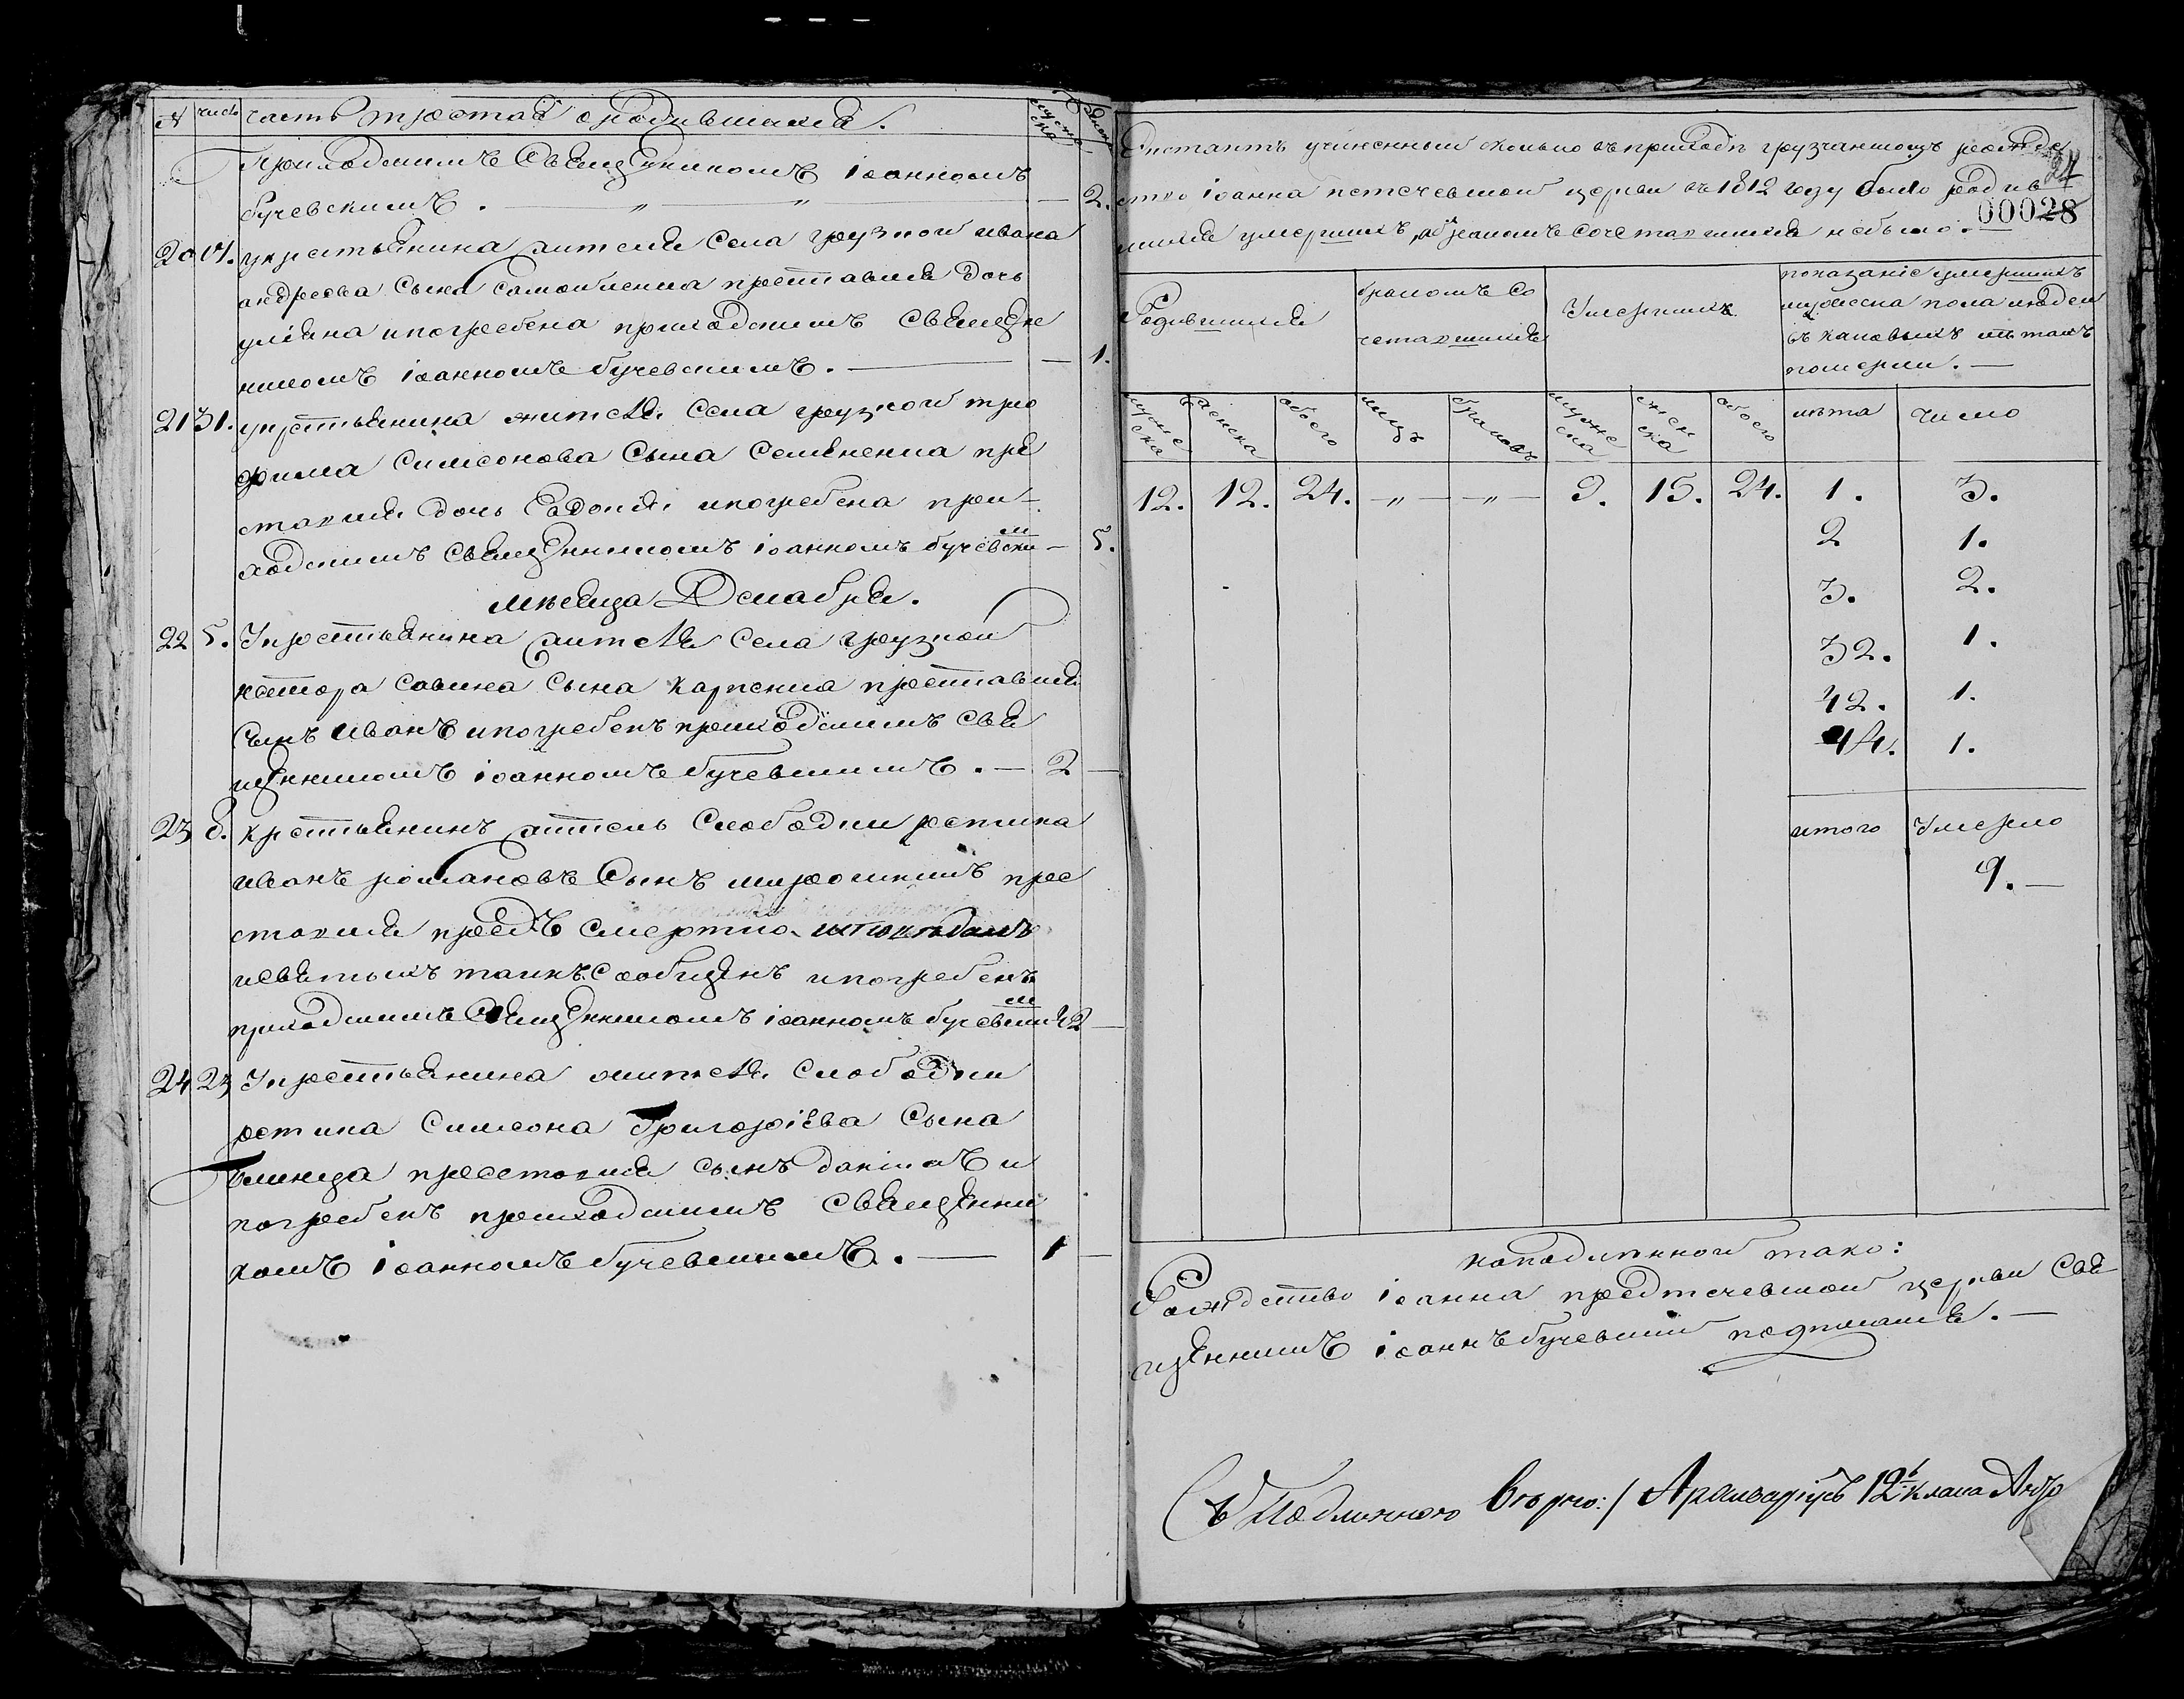 № число часть третая о родившихся. мужска женска
приходскимъ священникомъ іоанномъ
бучевскимъ. — „ — „ — 2.
20 укрестьянина жителя села грузкой ивана
андреева сына самойленка преставися дочь
уліяна ипогребена приходскимъ священ
никомъ іоанномъ бучевскимъ. — 1.
21 31. укрестьянина жителя села грузкой тро
фима симеонова сына семененка пре
ставися дочь Евдокія ипогребена при
ходскимъ священникомъ іоанномъ бучевским — 5.
мѣсяца Декабря.
22 5. Укрестьянина жителя села грузкой
нестора савина сына карпенка преставися
сынъ иванъ ипогребенъ приходскимъ свя
щенникомъ іоанномъ бучевскимъ. — 2 —
23 8. крестьянинъ житель слободки ростика
иванъ романовъ сынъ мирошникъ прес
тавися предъ смертію исповѣданъ
исвятыхъ таинъ сообщенъ ипогребенъ
приходскимъ священникомъ іоанномъ бучевским 2 —
24 23 Укрестьянина жителя слободки
ростика симеона Григоріева сына
преставися сынъ даніилъ и
погребенъ приходскимъ священни
комъ іоанномъ бучевскимъ. — 1 —
24
Экстрактъ учиненный сколько въ приходѣ грузчанскомъ рождес
тво іоанна петечевской церкви въ 1812 году было родив
00028
шихся умершихъ, абракомъ сочетавшихся небыло.
Родившихся бракомъ со четавшихся Умершихъ показаніе умершихъ мужеска пола людей въ каковыхъ лѣтахъ померли. —
мужеска женска обоего лицъ браковъ мужеска женска обоего лѣта число
12. 12. 24. — „ — — „ — 9. 15. 24. 1. 3.
2 1.
3. 2.
32. 1.
42. 1.
44. 1.
итого Умерло
9. —
наподлинной тако:
Рождество іоанна предтечевской церкви свя
щенникъ іоаннъ бучевскій подписалъ. —
Съ Подлиннымъ Вѣрно: / Архиваріусъ 12 класа